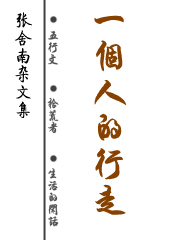 一個人的行走
● 五行文
● 拾荒者
● 生活的閑話
张舍南杂文集